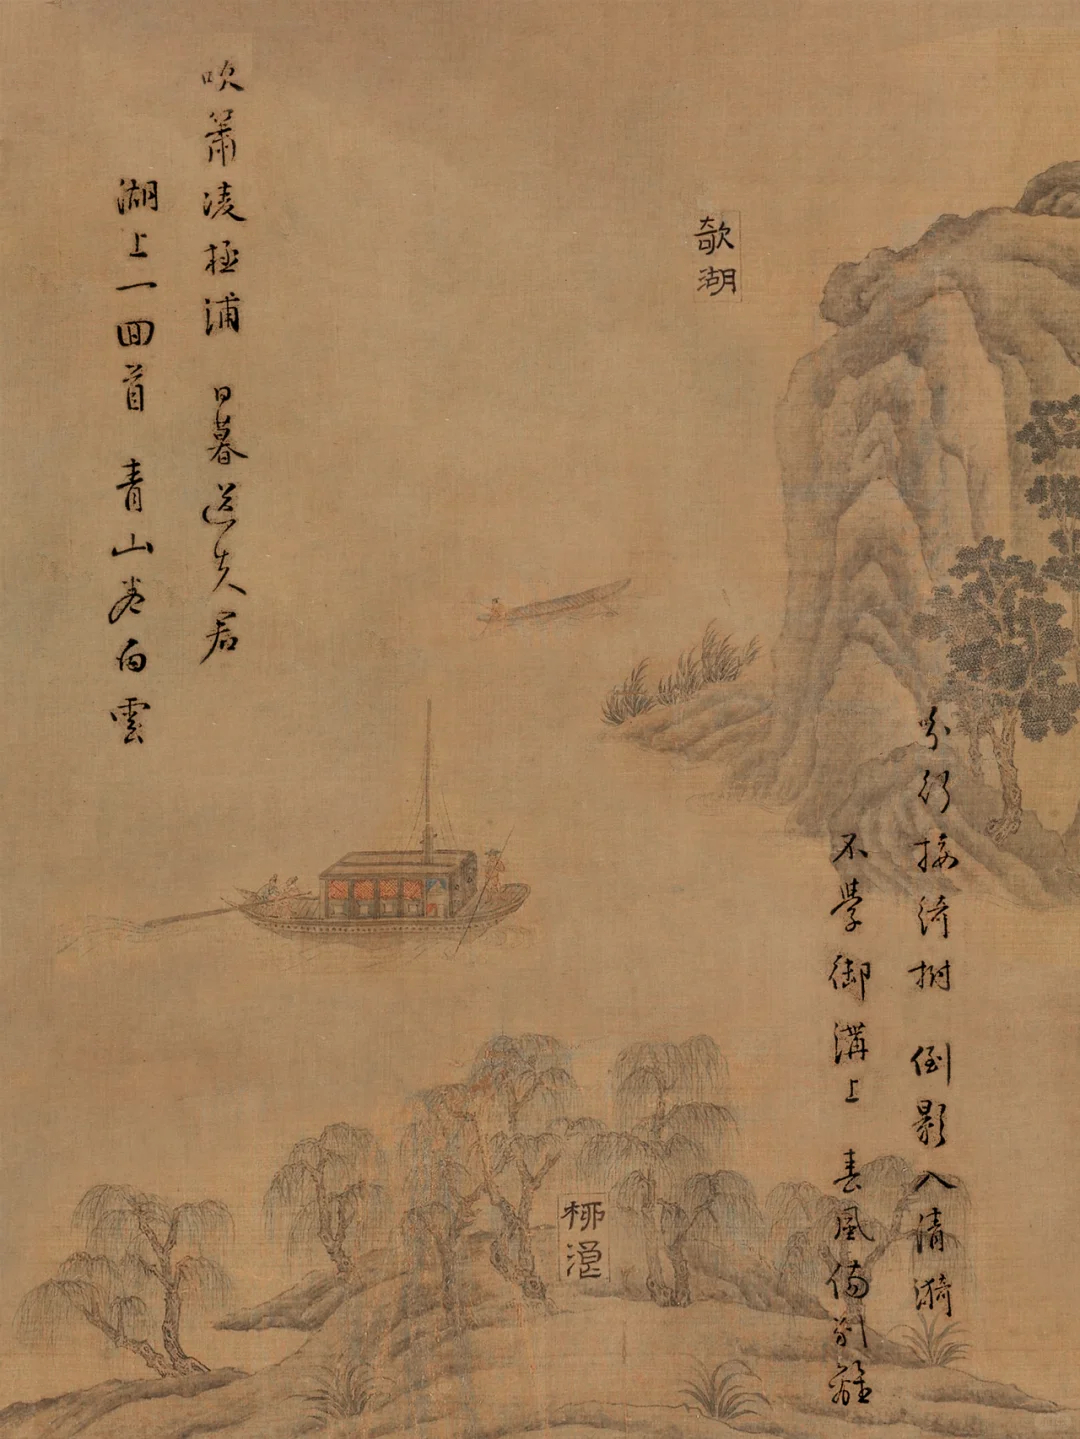 欹湖
吹簫凌極浦 日暮送夫君
湖上一囬首 青山卷白雲
柳浪
分行接綺樹 倒影入清漪
不學御溝上 春風傷別離